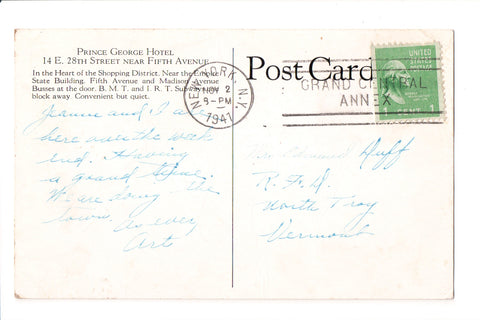 PRINCE GEORGE HOTEL
14 E. 28TH STREET NEAR FIFTH AVENUE
In the Heart of the Shopping District. Near the Empire
State Building. Fifth Avenue and Madison Avenue
Busses at the door. B. M. T. and I. R. T. Subways
block away. Convenient but quiet.
Jeanne and I are
here over the week
end. Having
a grand time.
We are doing the
town. As ever
Art
Post Card
NEW YORK, N.Y.
NOV 2
9-PM
1941
GRAND CENTRAL
ANNEX
UNITED
STATES
Edward Duff
R.F.D.
North Troy
Vermont